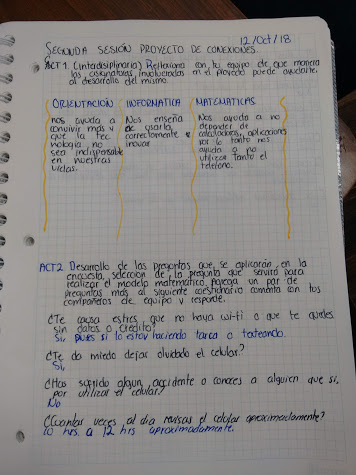 12/Oct/18
SEGUNDA SESIÓN PROYECTO DE CONEXIONES.
ACT 1. (Interdisiplinaria) Reflexiona con tu equipo de que manera
las asignaturas involucradas en el proyecto puede ayudarte,
al desarrollo del mismo.
ORIENTACIÓN
nos ayuda a
convivir más y
que la tec
nología no
sea indispensable
en nuestras
vidas.
INFORMATICA
Nos enseña
de usarla
correctamente e
inovar
MATEMÁTICAS
Nos ayuda a no
depender de
calculadoras, aplicaciones
por lo tanto nos
ayuda a no
utilizar tanto el
telefono.
ACT2. Desarrollo de las preguntas que se aplicarán en la
encuesta, selección de la pregunta que servirá para
realizar el modelo matemático, agrega un par de
preguntas más al siguiente cuestionario comenta con tus
compañeros de equipo y responde.
¿Te causa estres, que no haya wi-fi o que te quedes
sin datos o crédito?
Si, pues si lo estoy haciendo tarea o texteando.
¿Te da miedo dejar olvidado el celular?
Si,
¿Has sufrido algun accidente o conoces a alguien que si,
por utilizar el celular?
No
¿Cuantas veces al dia revisas el celular aproximadamente?
10 hrs. a 12 hrs aproximadamente.